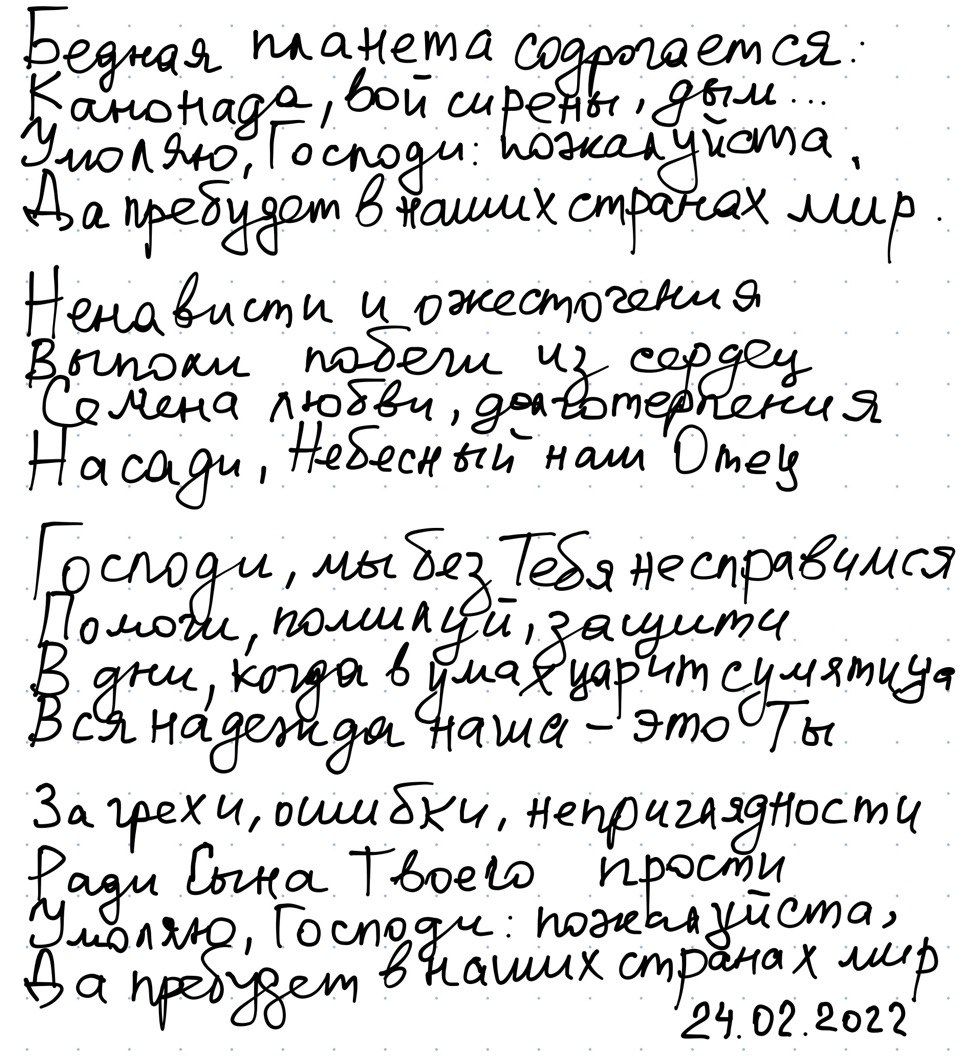 Бедная планета содрогается:
Канонада, вой сирены, дым...
Умоляю, Господи: пожалуйста,
Да пребудет в наших странах мир.
Ненависти и ожесточения
Выполи побеги из сердец
Семена любви, долготерпения
Насади, Небесный наш Отец
Господи, мы без Тебя не справимся
Помоги, помилуй, защити
В дни, когда в умах царит сумятица
Вся надежда наша – это Ты
За грехи, ошибки, неприглядности
Ради Сына Твоего прости
Умоляю, Господи: пожалуйста,
Да пребудет в наших странах мир
24.02.2022